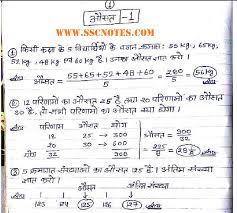 ①
औसत -1
www.SSCNOTES.COM
① किसी कक्षा के 5 विद्यार्थियों के वजन क्रमशः 55 kg, 65 kg,
52 kg, 48 kg एवं 60 kg है। उनका औसत ज्ञात करो।
औसत = 55+65+52+48+60 / 5 = 280/5 = 56 kg
② 12 परिणामों का औसत 25 है तथा 20 परिणामों का औसत
30 है, तो सभी परिणामों का औसत क्या होगा।
परिणाम औसत योग
12 25 → 300
20 30 → 600
योग 32 → 900
औसत = 900/32
= 225/8 = 28 1/8
③ 5 क्रमागत संख्याओं का औसत 125 है। अंतिम संख्या
ज्ञात करो।
औसत अंतिम संख्या
123 124 125 126 127